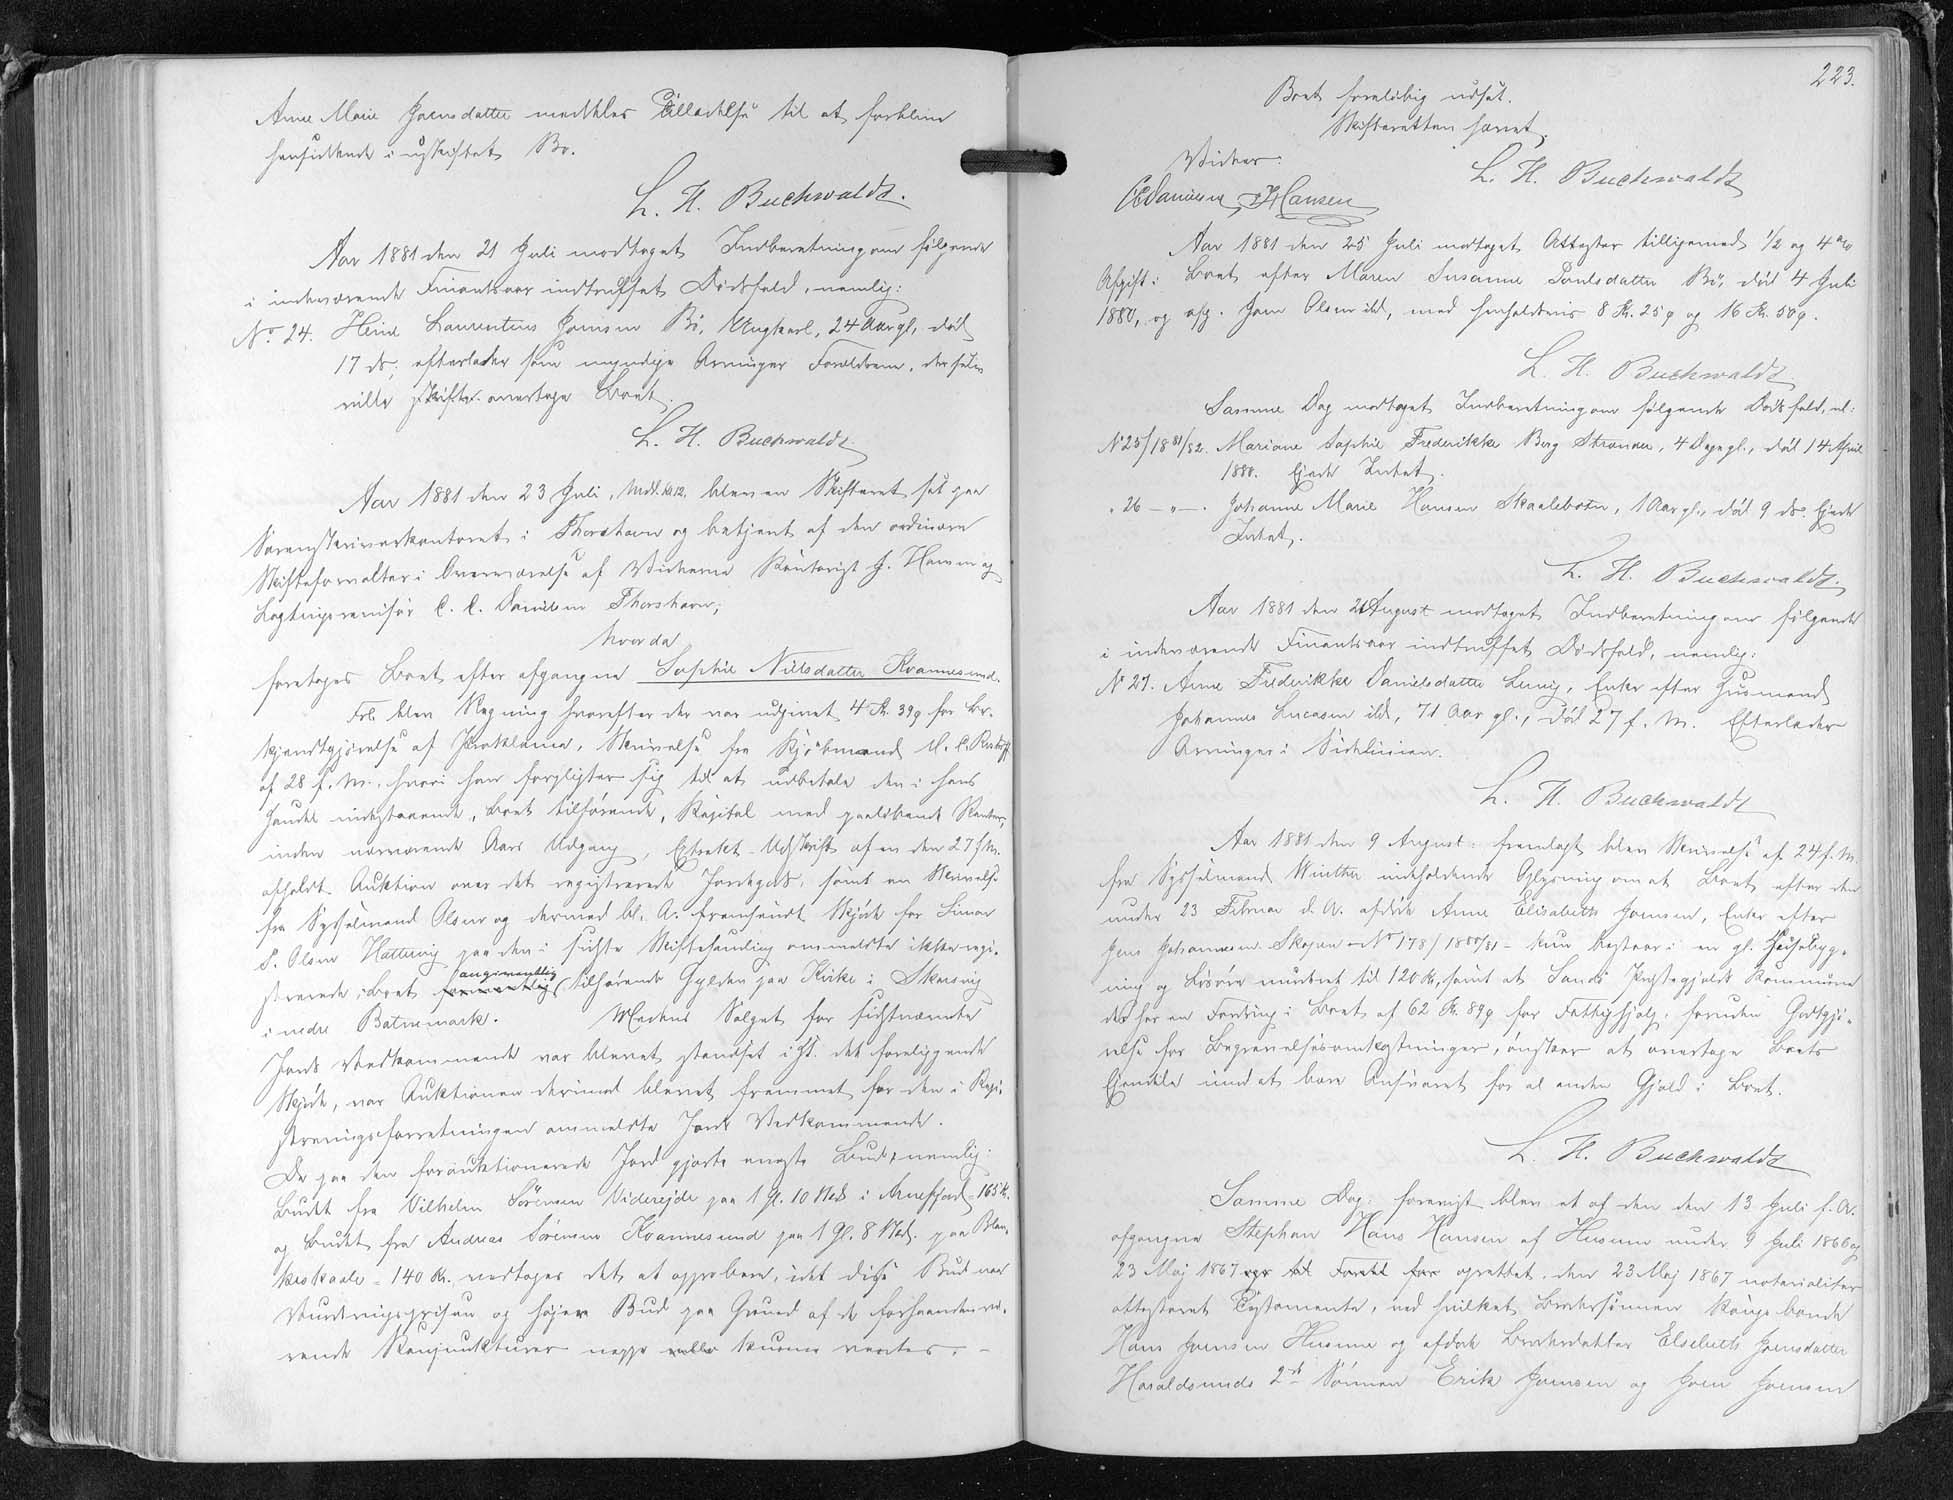 Anne Marie Joensdatter meddeles Tilladelse til at forblive
hensiddende i uskiftet Bo.
L. H. Buchwaldt.
Aar 1881 den 21 Juli modtoges Indberetning om følgende
i indeværende Finantsaar indtruffet Dødsfald, nemlig:
No. 24. Heine Laurentius Joensen Bø, Ungkarl, 24 Aar gl., død
17 ds., efterlader som myndige Arvinger Forældrene, der selv
ville skifte overtage Boet.
L. H. Buchwaldt
Aar 1881 den 23 Juli, Mdl. Kl. 12, blev en Skifteret sat paa
Sorenskriverkontoret i Thorshavn og betjent af den ordinære
Skifteforvalter i Overværelse af Vidnerne Kontorist J. Hansen og
Lagtingsrevisor C. C. Danielsen Thorshavn;
hvor da
foretoges Boet efter afgangne Sophie Nielsdatter Kvannesund.
Frl. blev Regning hvorefter der var udgivet 4 Kr. 39 ø for Be-
kjendtgjørelse af Proklama, Skrivelse fra Kjøbmand
af 28 f. M., hvori han forpligter sig til at udbetale den i hans
Handel indestaaende, Boet tilhørende, Kapital med paaløbende Renter,
inden nærværende Aars Udgang, Extrakt-Udskrift af en den 27 f. M.
afholdt Auktion over det registrerede Jordegods, samt en Skrivelse
fra Sysselmand Olsen og dermed bl. A. fremsendt Skjøde for Simon
P. Olsen Hattervig paa den i sidste Skiftesamling ommeldte ikke regi-
strerede, Boet formentlig angiventlig tilhørende Gylden paa Kirke i
i nedre Batnemark. Medens Salget for sidstnævnte
Jords Vedkommende var blevet standset i Hh. t. det foreliggende
Skjøde, var Auktionen derimod blevet fremmet for den i Regi-
streringsforretningen ommeldte Jords Vedkommende.
De paa den forauktionerede Jord gjorte eneste Bud, nemlig:
Budet fra Vilhelm Sørensen Viderejde paa 1 Gl. 10 Skd. i Arnefjord = 165 Kr.
og Budet fra Andreas Sørensen Kvannesund paa 1 Gl. 8 Skd. paa Blan-
keskaale = 140 Kr. vedtoges det at approbere, idet disse Bud naa
Vurderingsprisen og højere Bud paa Grund af de forhaandenvæ-
rende Konjunkturer neppe ville kunne ventes. -
223.
Boet foreløbig udsat.
Skifteretten hævet.
Vidner: L. H. Buchwaldt
C C Danielsen, J Hansen
Aar 1881 den 25 Juli modtoges Attester tilligemed 1/2 og 4 %
Afgift i Boet efter Maren Susanne Poulsdatter Bø, død 4 Juli
1880, og afg. Joen Olsen ibd., med henholdsvis 8 Kr. 25 ø og 16 Kr. 50 ø.
L. H. Buchwaldt
Samme Dag modtoges Indberetning om følgende Dødsfald, nl:
No 25/1881/82. Mariane Sophie Frederikke Berg Strømnæs, 4 Dage gl., død 14 April
1880. Ejede Intet.
" 26 — " —. Johanne Marie Hansen Skaalebotn, 1 Aar gl., død 9 ds. Ejede
Intet.
L. H. Buchwaldt.
Aar 1881 den 2 August modtoges Indberetning om følgende
i indeværende Finantsaar indtruffet Dødsfald, nemlig:
No 27. Anne Frederikke Danielsdatter Lervig, Enke efter Husmand
Johannes Lucasen ibd., 71 Aar gl., død 27 f. M. Efterlader
Arvinger i Sidelinien.
L. H. Buchwaldt
Aar 1881 den 9 August: fremlagt blev Skrivelse af 24 f. M.
fra Sysselmand Winther indeholdende Oplysning om at Boet efter den
under 23 Februar d. A. afdøde Anne Elisabeth Joensen, Enke efter
Jens Johannesen Skopen - No 178/1880/81 - kun bestaar i en gl. Husebyg-
ning og Løsøre vurderet til 120 Kr., samt at Sandø Præstegjelds Kommune
der har en Fordring i Boet af 62 Kr. 89 ø for Fattighjælp, foruden Godtgjø-
relse for Begravelsesomkostninger, ønsker at overtage Boets
Ejendele imod at bære Ansvaret for al anden Gjæld i Boet.
L. H. Buchwaldt
Samme Dag: forevist blev et af den den 13 Juli f. A.
afgangne Stephan Hans Hansen af Husum under 9 Juli 1866 og
23 Maj 1867 oprettet, den 23 Maj 1867 notarialiter
attesteret Testamente, ved hvilket Brodersønnen Kongsbonde
Hans Joensen Husum og afdøde Broderdatter Elsebeth Joensdatter
Haraldsunds 2de Sønner Erik Joensen og Joen Joensen